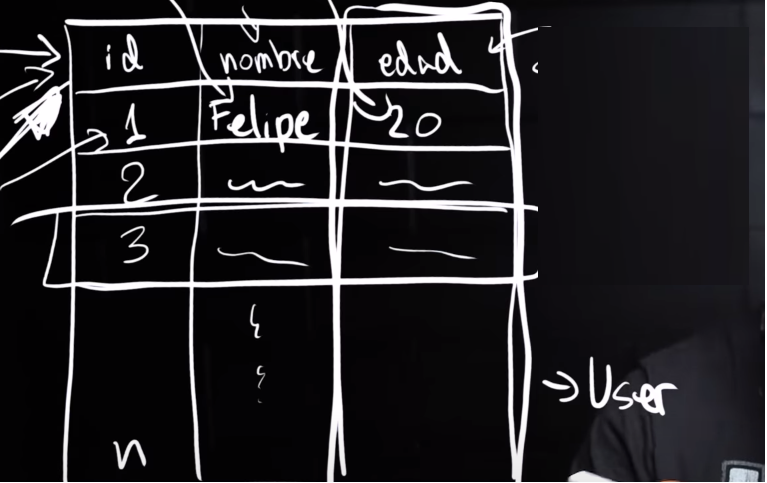 id nombre edad
1 Felipe 20
2
3
n
→ User